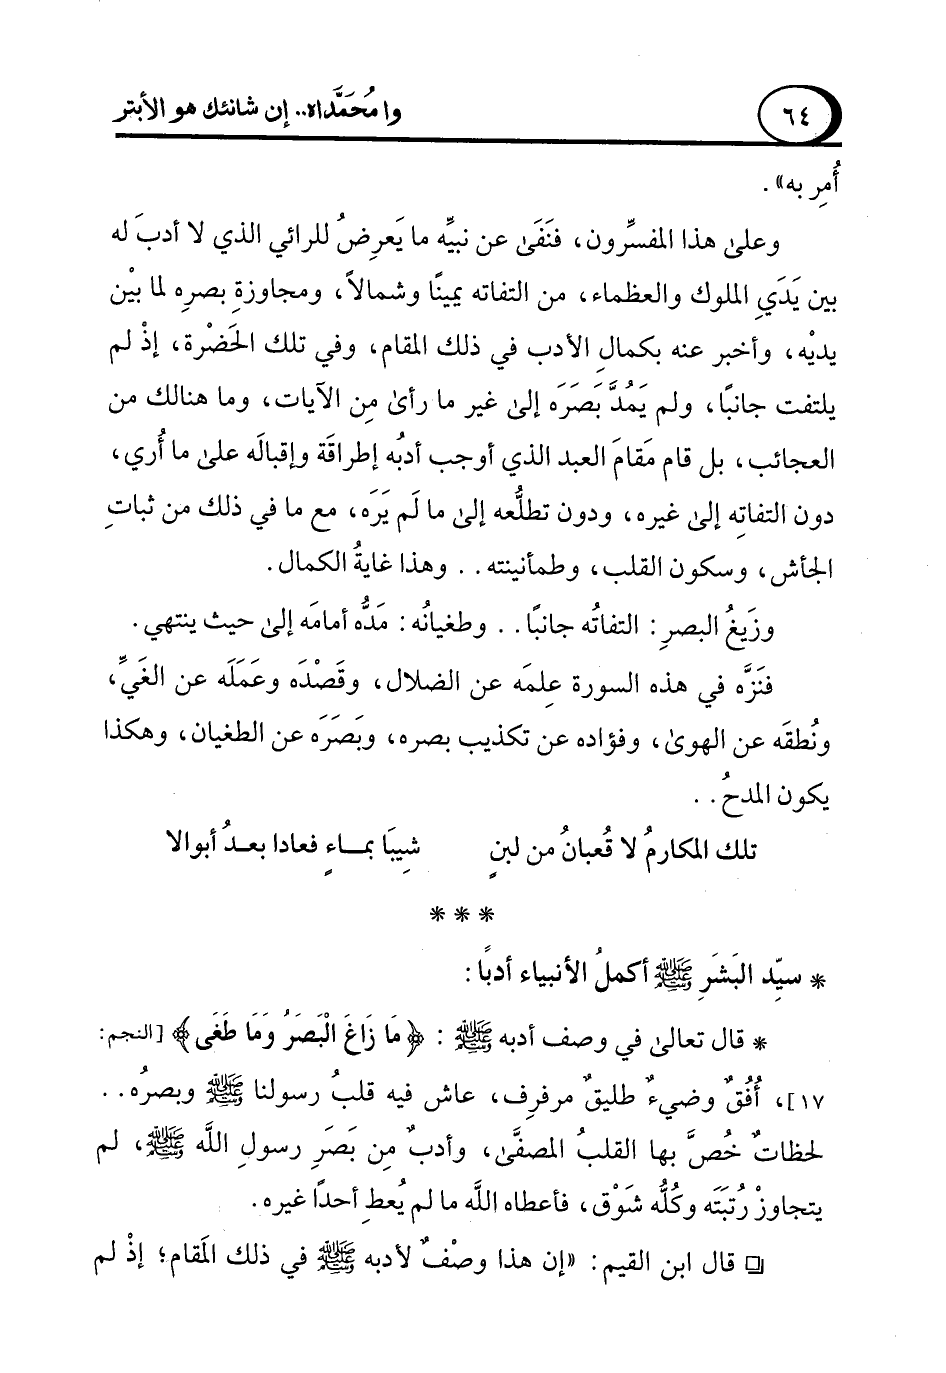 ٦٤
وا مُحَمَّداه.. إن شانئك هو الأبتر
أُمِر به» .
وعلىٰ هذا المفسِّرون، فنَفَى عن نبيِّه ما يَعرِضُ للرائي الذي لا أدبَ له
بين يَدَيِ الملوك والعظماء، من التفاته يمينًا وشمالاً، ومجاوزةِ بصرِه لما بيْن
يديْه، وأخبر عنه بكمالِ الأدب في ذلك المقام، وفي تلك الحَضْرة، إذْ لم
يلتفت جانبًا، ولم يَمُدَّ بَصَرَه إلىٰ غير ما رأىٰ مِن الآيات، وما هنالك من
العجائب، بل قام مَقامَ العبد الذي أوجب أدبُه إطراقَة وإقبالَه علىٰ ما أُري،
دون التفاتِه إلىٰ غيره، ودون تطلُّعه إلىٰ ما لَم يَرَه، مع ما في ذلك من ثباتِ
الجأش، وسكون القلب، وطمأنينته . . وهذا غايةُ الكمال.
وزَيغُ البصرِ : التفاتُه جانبًا . . وطغيانُه : مَدُّه أمامَه إلىٰ حيث ينتهي.
فنَزَّه في هذه السورة علِمَه عن الضلال، وقَصْدَه وعَمَلَه عن الغَيِّ،
ونُطقَه عن الهوىٰ، وفؤاده عن تكذيب بصره، وبَصَرَه عن الطغيان، وهكذا
يكون المدحُ . .
تلك المكارمُ لا قُعبانُ من لبنٍ شِيبَا بمـاءٍ فعادا بعـدُ أبوالا
* * *
* سيِّد البَشَرِ ﷺ أكملُ الأنبياء أدبًا :
* قال تعالىٰ في وصف أدبه ﷺ : ﴿مَا زَاغَ الْبَصَرُ وَمَا طَغَى﴾ [النجم:
١٧]، أُفُقٌ وضيءٌ طليقٌ مرفرف، عاش فيه قلبُ رسولنا ﷺ وبصرُه . .
لحظاتٌ خُصَّ بها القلبُ المصفَّىٰ، وأدبٌ مِن بَصَرِ رسولِ اللَّه ﷺ، لم
يتجاوزْ رُتبَتَه وكُلُّه شَوْق، فأعطاه اللَّه ما لم يُعطِ أحدًا غيره.
❏ قال ابن القيم : «إن هذا وصْفٌ لأدبه ﷺ في ذلك المَقام؛ إذْ لم